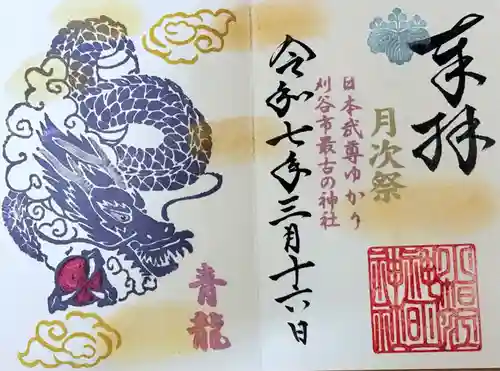 奉拝
月次祭
日本武尊ゆかり
刈谷市最古の神社
令和七年三月十六日
青龍